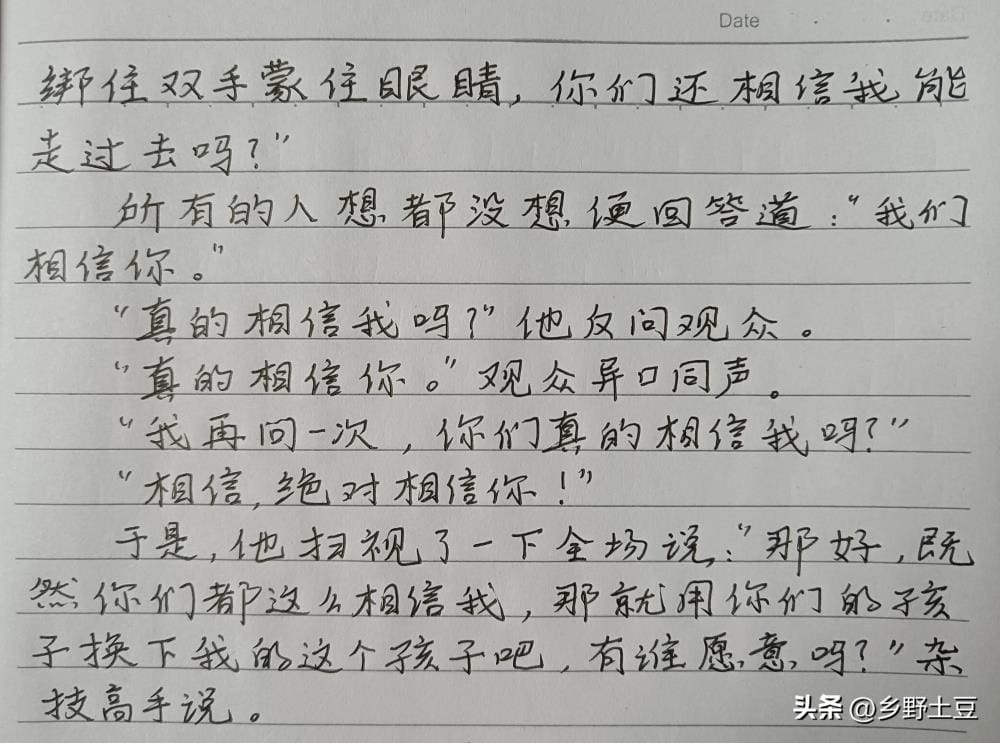 Date
绑住双手蒙住眼睛，你们还相信我能
走过去吗？”
所有的人想都没想便回答道：“我们
相信你。”
“真的相信我吗？”他反问观众。
“真的相信你。”观众异口同声。
“我再问一次，你们真的相信我吗？”
“相信，绝对相信你！”
于是，他扫视了一下全场说：“那好，既
然你们都这么相信我，那就用你们的孩
子换下我的这个孩子吧，有谁愿意吗？”杂
技高手说。
头条 @乡野土豆